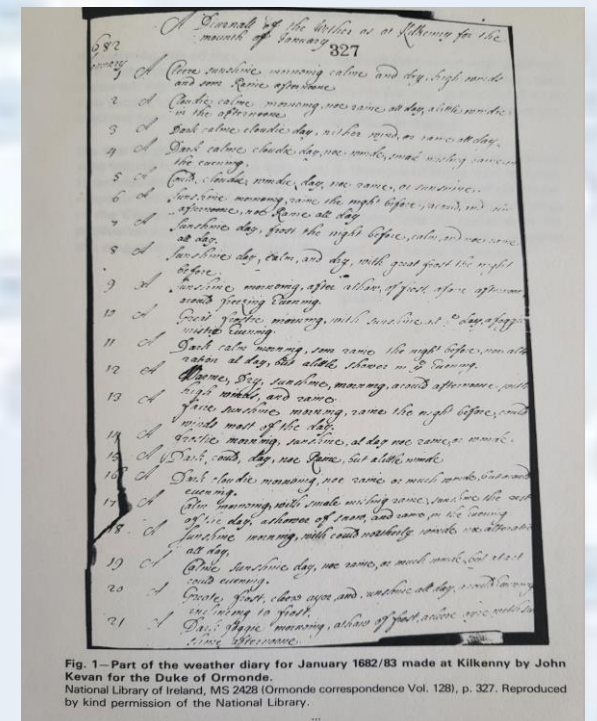 A Diurnall of the Wether as at Kilkenny for the
mounth of January
327
1 A Cleere sunshine morninig calme and dry, high winds
and som Raine afternoone
2 A Cloudie calme morning, noe raine all day, a little windie
in the afternoone
3 A Dark calme cloudie day, nither wind, or raine all day.
4 A Dark calme cloudie day, noe winde, smale misling raine in
the evening.
5 A Could, cloudie, windie, day, noe raine, or sunshine.
6 A Sunshine morning, raine the night before, a could, and
afternoone, not Raine all day
7 A Sunshine day, frost the night before, calme, and noe raine
all day.
8 A Sunshine day, calm, and dry, with great frost the night
before.
9 A Sunshine morning, after a thaw, of frost, afaire afternoon
acould freezing Evening.
10 A Great frostie morning, with sunshine at day, afoggie
mistie Evening.
11 A Dark calm morning, som raine the night before, non alte
ration at day, but alitle shower in ye Evening.
12 A Warme, Dry, sunshine, morning, acould afternoone, with
high winds, and raine.
13 A faire sunshine morning, raine the night before, could
winds most of the day.
14 A frostie morning, sunshine, al day noe raine or winde.
15 A Dark, could, day, noe Raine, but alitle winde
16 A Dark cloudie morning, noe raine or much winde, but acould
evening.
17 A Calm morning, with smale misling raine, sunshine the rest
of the day, ashower of snow, and raine, in the Evening
18 A Sunshine morning, with could northerly winde, no alteratio
all day.
19 A Calme sunshine day, noe raine, or much winde, but
could evening.
20 A Greate frost, cleere ayre, and sunshine all day, acould evening
inclineing to frost.
21 A Dark foggie morning, athaw of frost, acleere ayre with sun
shine afternoone.
Fig. 1—Part of the weather diary for January 1682/83 made at Kilkenny by John
Kevan for the Duke of Ormonde.
National Library of Ireland, MS 2428 (Ormonde correspondence Vol. 128), p. 327. Reproduced
by kind permission of the National Library.